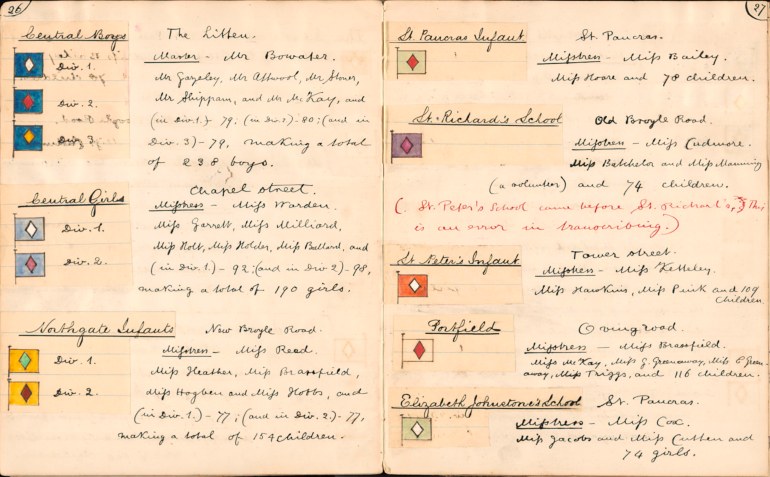 26
Central Boys
The Litten.
Div. 1.
Master - Mr Bowater.
Mr Gazeley, Mr Attwool, Mr Stoner,
Div. 2.
Mr Shippram, and Mr McKay, and
(in Div. 1.) - 79, (in Div. 2) - 80; (and in
Div. 3
Div. 3) - 79, making a total
of 238 boys.
Central Girls
Chapel street.
Div. 1.
Mistress - Miss Warden.
Miss Garrett, Miss Milliard,
Miss Holt, Miss Holder, Miss Bullard, and
Div. 2.
(in Div. 1.) - 92; (and in Div 2) - 98,
making a total of 190 girls.
Northgate Infants
New Broyle Road.
Div. 1.
Mistress - Miss Reed.
Miss Heather, Miss Brassfield,
Div. 2.
Miss Hogben and Miss Hobbs, and
(in Div. 1.) - 77; (and in Div. 2.) - 77,
making a total of 154 children.
27
St. Pancras Infant
St. Pancras.
Mistress - Miss Bailey.
Miss Hoare and 78 children.
St. Richard's School
Old Broyle Road.
Mistress - Miss Cudmore.
Miss Batchelor and Miss Manning
(a volunteer) and 74 children.
(St. Peter's School came before St. Richard's, This
is an error in transcribing.)
St Peter's Infant
Tower street.
Mistress - Miss Ketteley.
Miss Hawkins, Miss Pink and 109
children.
Portfield
Oving road.
Mistress - Miss Brassfield.
Miss McKay, Miss G. Greenaway, Miss E Green-
away, Miss Triggs, and 116 children.
Elizabeth Johnstone's School
St. Pancras.
Mistress - Miss Cox.
Miss Jacobs and Miss Cutten and
74 girls.